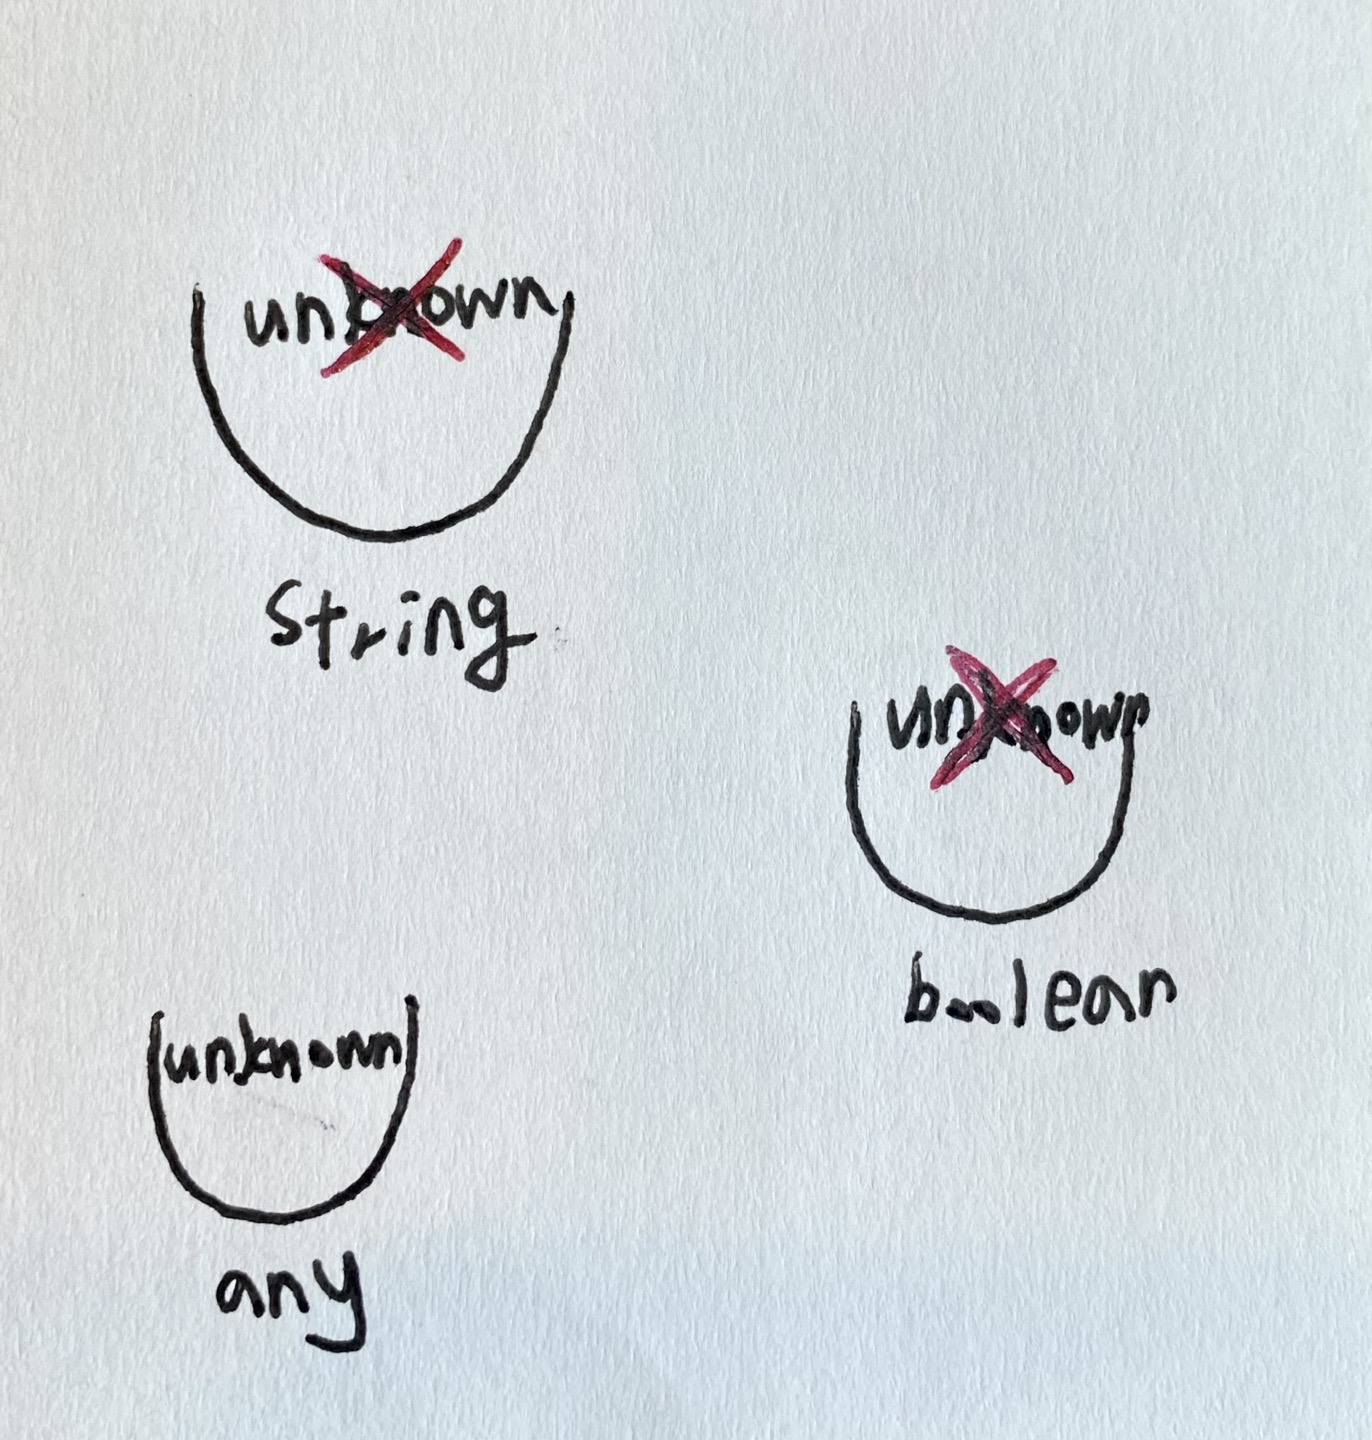 unknown
string
unknown
boolean
unknown
any